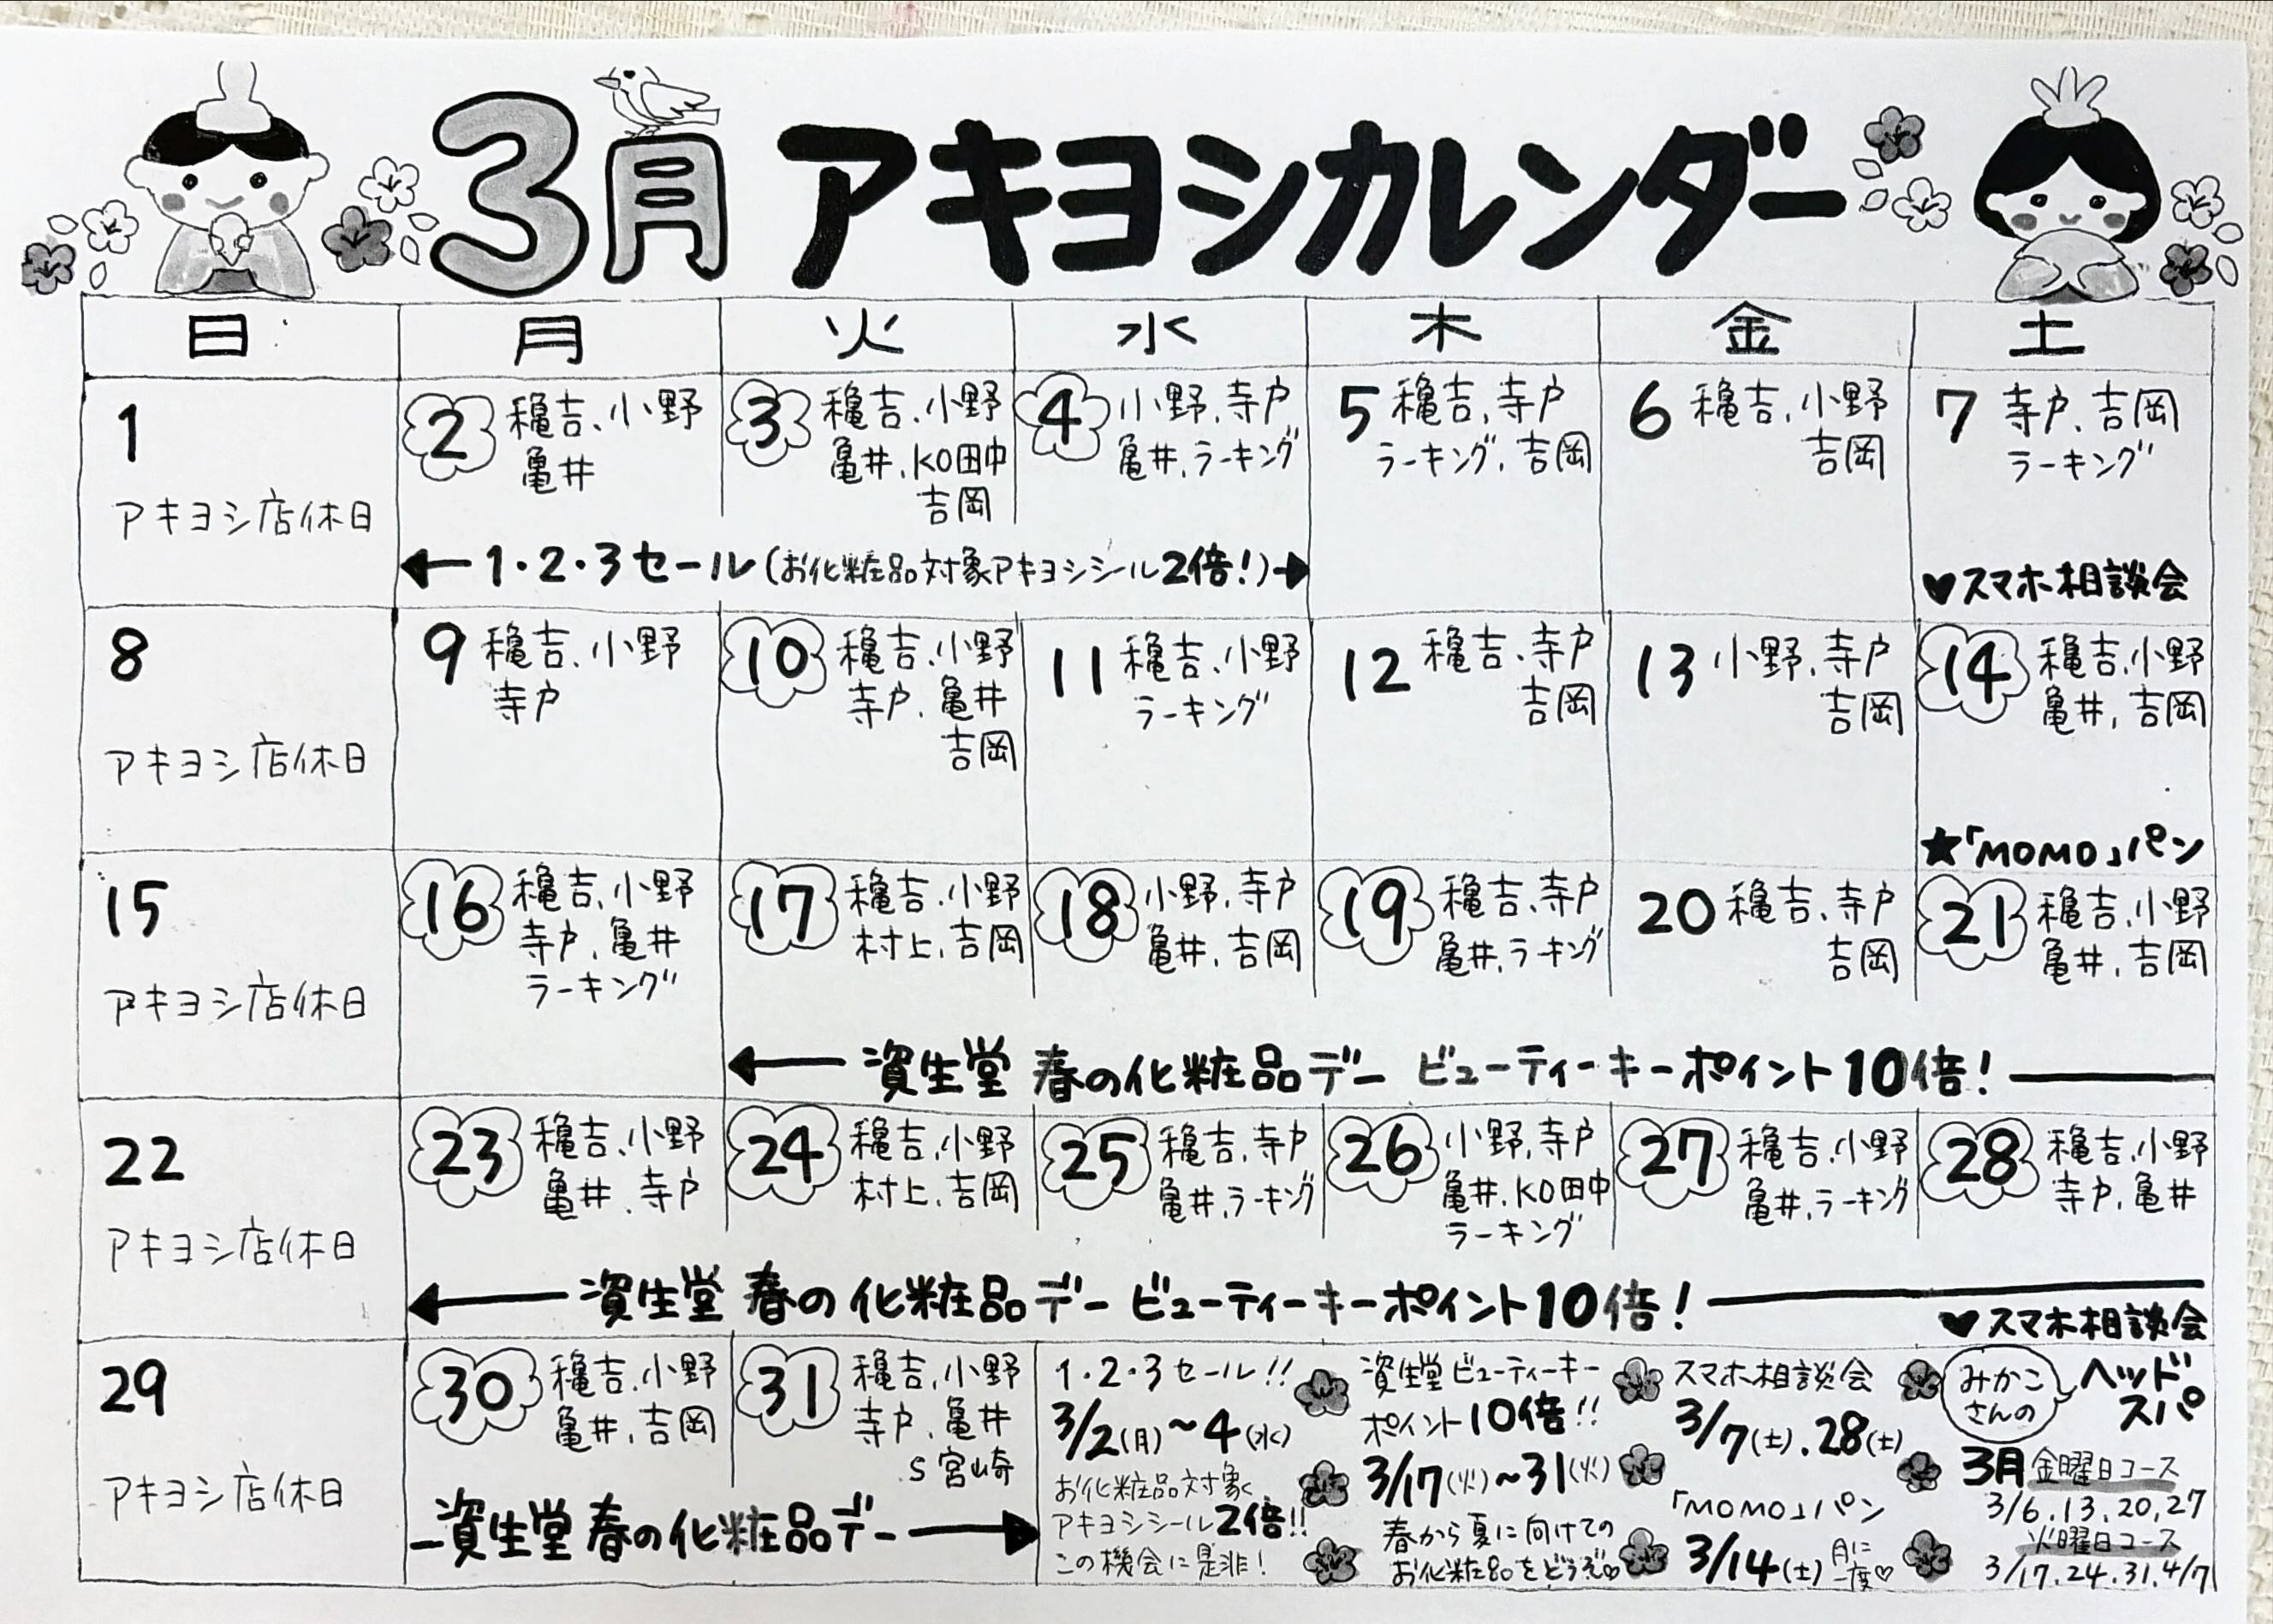 3月 アキヨシカレンダー
日 月 火 水 木 金 土
1
アキヨシ店休日
2 穐吉、小野
亀井
3 穐吉、小野
亀井、KO田中
吉岡
4 小野、寺戸
亀井、ラーキング
5 穐吉、寺戸
ラーキング、吉岡
6 穐吉、小野
吉岡
7 寺戸、吉岡
ラーキング
←1・2・3セール(お化粧品対象アキヨシシール2倍!)→
♥スマホ相談会
8
アキヨシ店休日
9 穐吉、小野
寺戸
10 穐吉、小野
寺戸、亀井
吉岡
11 穐吉、小野
ラーキング
12 穐吉、寺戸
吉岡
13 小野、寺戸
吉岡
14 穐吉、小野
亀井、吉岡
★「MOMO」パン
15
アキヨシ店休日
16 穐吉、小野
寺戸、亀井
ラーキング
17 穐吉、小野
村上、吉岡
18 小野、寺戸
亀井、吉岡
19 穐吉、寺戸
亀井、ラーキング
20 穐吉、寺戸
吉岡
21 穐吉、小野
亀井、吉岡
← 資生堂 春の化粧品デー ビューティーキーポイント10倍!
22
アキヨシ店休日
23 穐吉、小野
亀井、寺戸
24 穐吉、小野
村上、吉岡
25 穐吉、寺戸
亀井、ラーキング
26 小野、寺戸
亀井、KO田中
ラーキング
27 穐吉、小野
亀井、ラーキング
28 穐吉、小野
寺戸、亀井
← 資生堂 春の化粧品デー ビューティーキーポイント10倍!
♥スマホ相談会
29
アキヨシ店休日
30 穐吉、小野
亀井、吉岡
31 穐吉、小野
寺戸、亀井
S宮崎
資生堂 春の化粧品デー →
1・2・3セール!!
3/2(月)～4(水)
お化粧品対象
アキヨシシール2倍!!
この機会に是非!
資生堂ビューティーキー
ポイント10倍!!
3/17(火)～31(火)
春から夏に向けての
お化粧品をどうぞ♡
スマホ相談会
3/7(土).28(土)
「MOMO」パン
3/14(土) 月に
一度♡
みかこ
さんの
ヘッド
スパ
3月 金曜日コース
3/6.13.20.27
火曜日コース
3/17.24.31.4/7